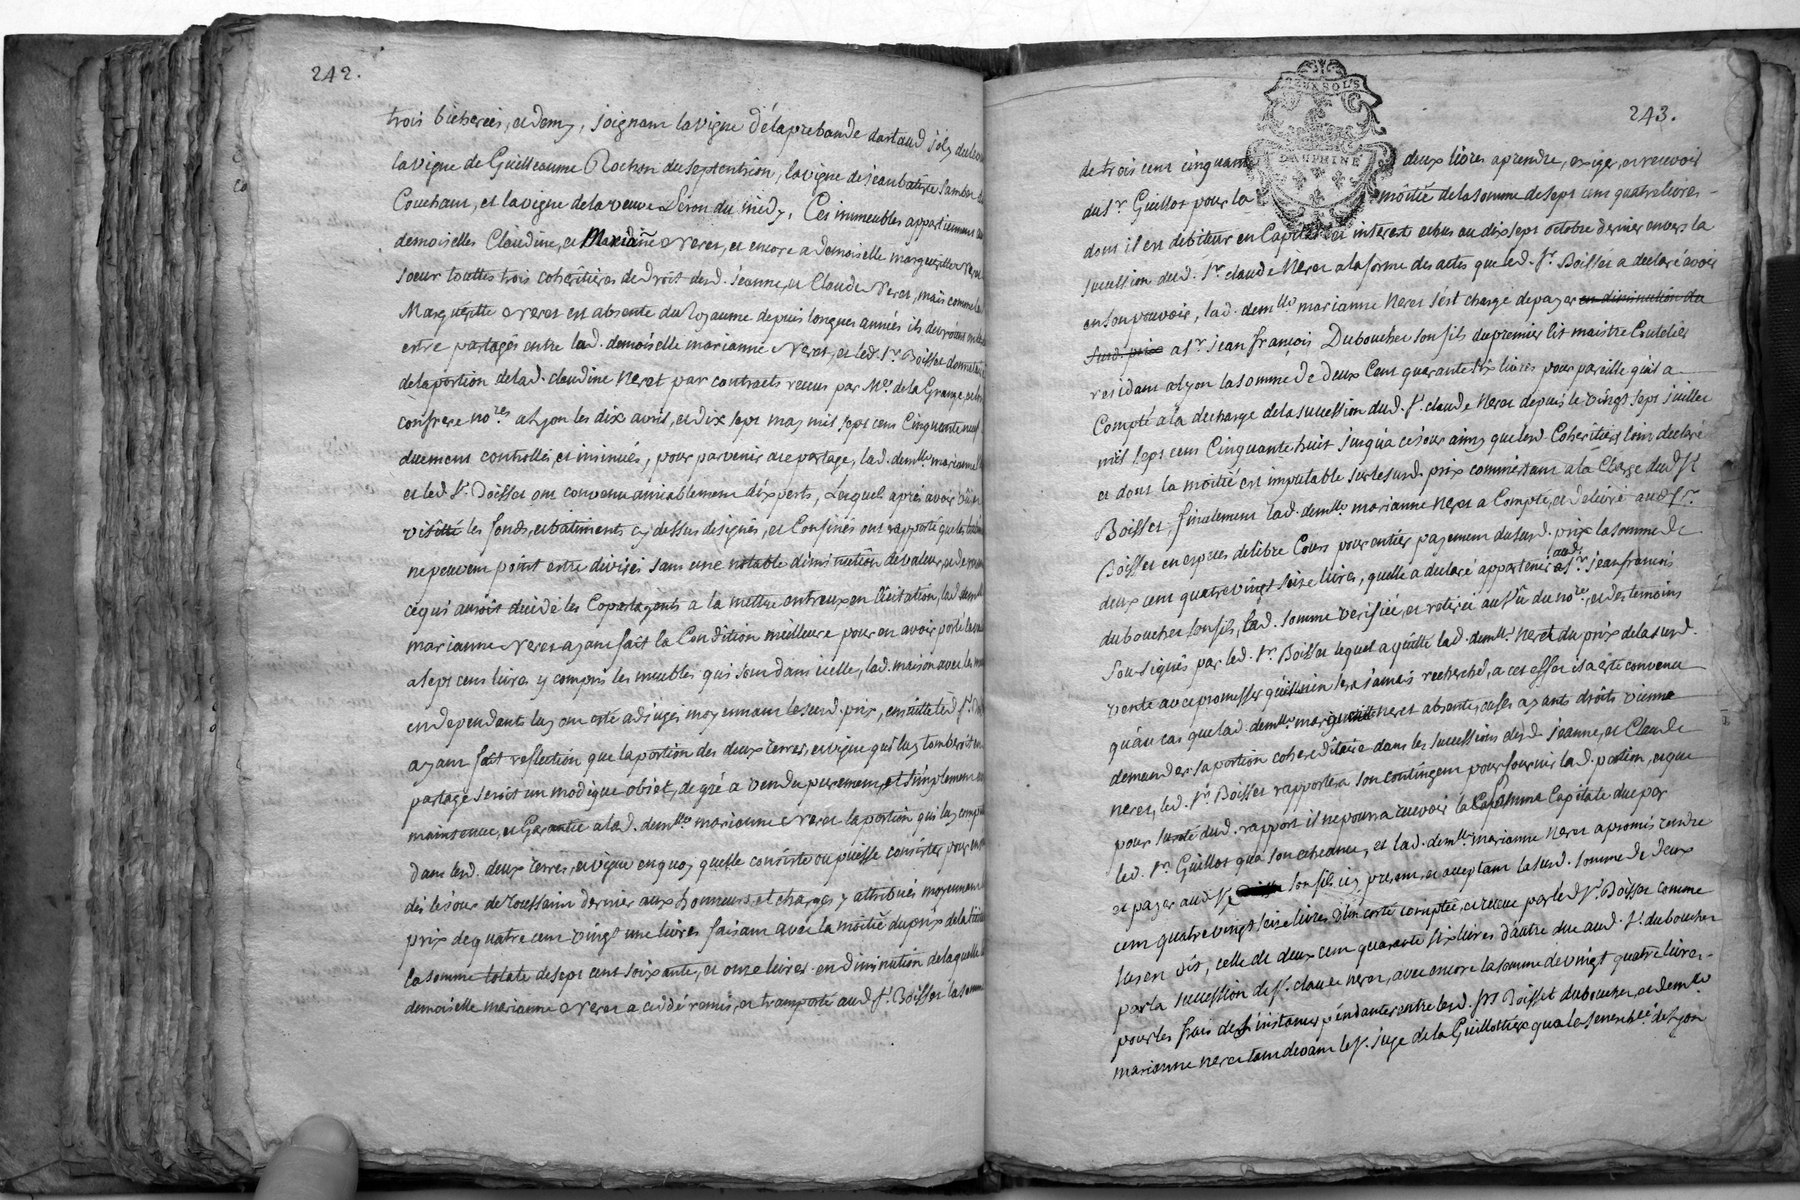 242.
trois bicherées, et demy, joignant la vigne de la prebande dartaud joly du
la vigne de Guilleaume Rochon du septentrion, la vigne de jean batiste
Couchant, et la vigne de la veuve du midy, Ces immeubles appartiennent
demoiselles Claudine, et Marianne Neret, et encore a demoiselle margueritte Neret
soeur touttes trois coheritieres de droit desd. jeanne, et Claude Neret, mais comme lad
Margueritte Neret est absente du Royaume depuis longues années ils devroient
entre partagés entre lad. demoiselle marianne Neret, et led. Sr. Boisset
de la portion de lad. claudine Neret par contracts receus par Me. de la Grange, et
confrere nores. a Lyon les dix avril, et dix sept may mil sept cent Cinquante neuf
duement controllés, et insinués, pour parvenir a ce partage, lad. demlle. marianne
et led. Sr. Boisset ont convenu amiablement dexperts, Lesquels aprés avoir
visitté les fonds, et batiments cy dessus designés, et Confinés ont rapporté que les
ne peuvent point entre divisés sans une notable diminution de valeur, et de
ce qui auroit decidé les Copartagents a la mettre entreux en licitation, lad
marianne Neret ayant fait la Condition meilleure pour en avoir porté
a sept cens livres y compris les meubles qui sont dans icelle, lad. maison avec les
en dependent luy ont esté adjugés moyennant le susd. prix, ensuitte led. Sr.
ayant fait reflection que la portion des deux terres, et vigne qui luy tomberoit en
partage seroit un modique objet, de gré a vendu purement, et simplement
maintenue, et Garantie a lad. demlle. marianne Neret la portion qui luy
dans lesd. deux terres, et vigne en quoy quelle consiste ou puisse consister pour
dés le jour de Toussaint dernier aux honneurs, et charges y attribués moyennant
prix de quatre cent vingt une livres faisant avec la moitié du prix de la
la somme totale de sept cent soixante, et onze livres en diminution de laquelle
demoiselle marianne Neret a cedé remis, et transporté aud. Sr. Boisset la somme
DEUX SOLS
DAUPHINÉ
243.
de trois cent cinquante deux livres aprendre, exiger, et recevoir
du Sr. Guillot pour la moitié de la somme de sept cent quatre livres
dont il est debiteur en Capital et interest echus au dix sept octobre dernier envers la
succession dud. Sr. claude Neret a la forme des actes que led. Sr. Boisset a declaré avoir
en son pouvoir, lad. demlle. marianne Neret s'est chargé de payer en diminution du
susd. prix a Sr. jean françois Duboucher son fils du premier lit maistre Cutelier
residant a Lyon la somme de deux Cent quarante six livres pour pareille qu'il a
Compté a la decharge de la succession dud. Sr. claude Neret depuis le vingt sept juillet
mil sept cent Cinquante huit jusqu'a ce jour ainsy que lesd. Coheritiers l'ont declaré
et dont la moitié est imputable sur le susd. prix comme étant a la Charge dud. Sr.
Boisset, finalement lad. demlle. marianne Neret a Compté, et delivré aud. Sr.
Boisset en especes de libre Cours pour entier payement du susd. prix la somme de
deux cent quatre vingt seize livres, quelle a declaré appartenir aud. Sr. jean francois
duboucher son fils, lad. somme verifiée, et retirée au vû du nore. et des temoins
sousignés par led. Sr. Boisset lequel a quitté lad. demlle. Neret du prix de la susd.
vente avec promesses qu'il n'en sera jamais recherché, a cet effet il a eté convenu
qu'au cas que lad. demlle. margueritte neret absente, ou ses ayants droits vienne
demander sa portion cohereditaire dans les successions desd. jeanne, et Claude
neret, led. Sr. Boisset rapportera son contingent pour fournir lad. portion, et que
pour sureté dud. rapport il ne pourra recevoir la somme Capitale due par
led. Sr. Guillot qu'a son echeance, et lad. demlle. marianne Neret a promis rendre
et payer aud. Sr. son fils icy present, et acceptant la susd. somme de deux
cent quatre vingt seize livres d'un costé comptée, et recue par led. Sr. Boisset comme
sus en vis, celle de deux cent quarante six livres d'autre due aud. Sr. duboucher
par la succession de Sr. claude neret, avec encore la somme de vingt quatre livres
pour les frais des instances pendantes entre lesd. Srs. Boisset duboucher, et demlle.
marianne neret tant devant le Sr. juge de la Guillottiere qu'a la Senechée. de Lyon